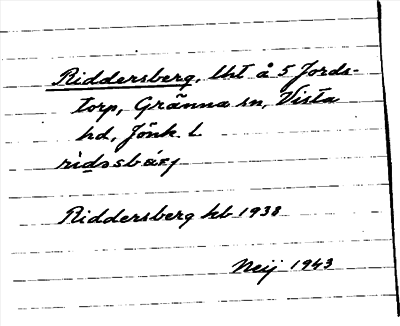 Riddersberg, lht å 5 Jords-
torp, Gränna sn, Vista
hd, Jönk. L
Riddersberg kb 1938
Neij 1943